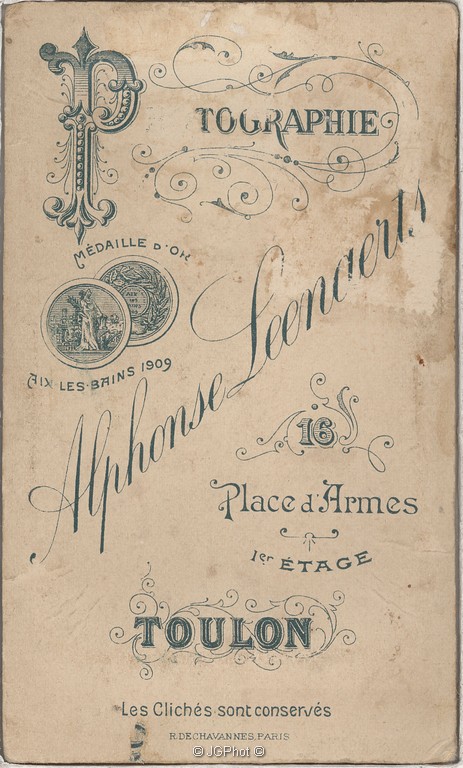 P TOGRAPHIE
MÉDAILLE D'OR
AIX-LES-BAINS 1909
Alphonse Leenaerts
16
Place d'Armes
1er ÉTAGE
TOULON
Les Clichés sont conservés
R.DECHAVANNES.PARIS
© JGPhot ©